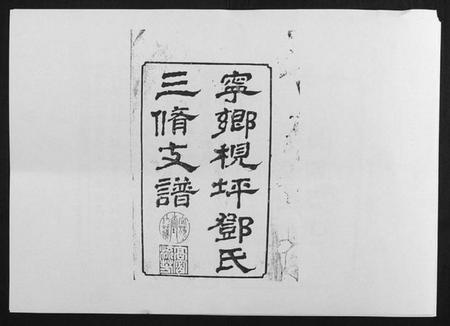 寧鄉枧坪鄧氏
三脩支譜